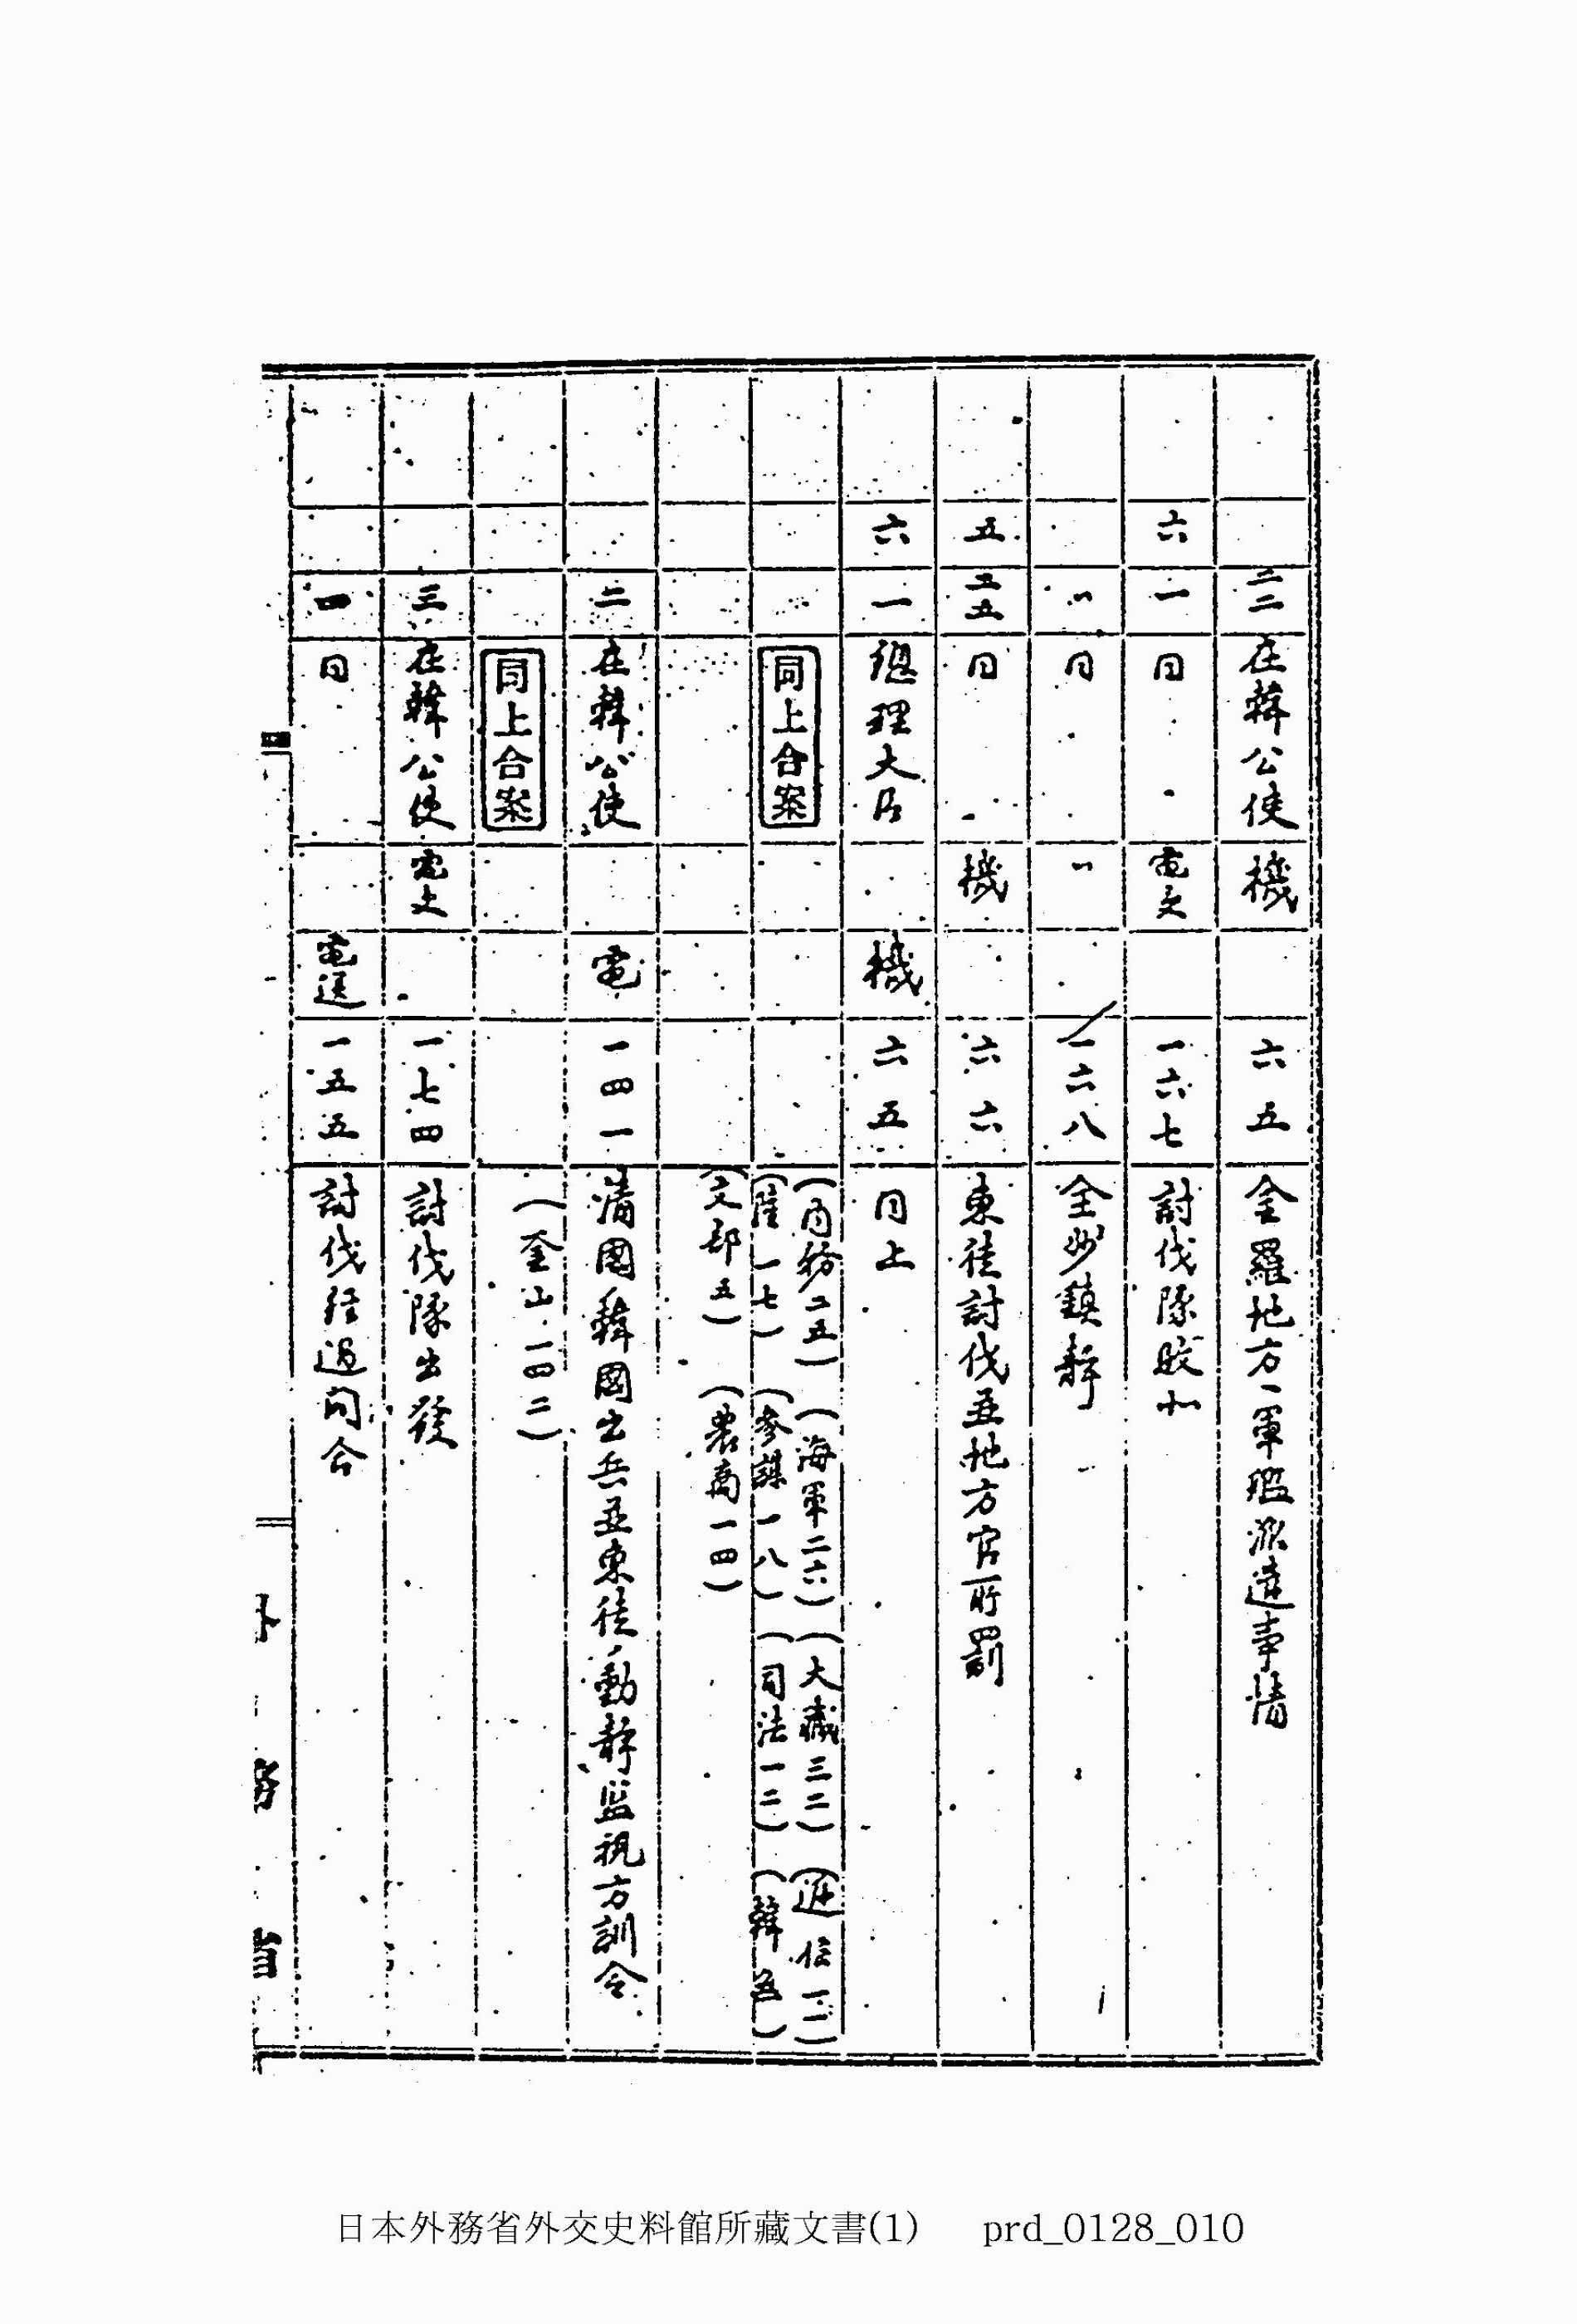 二二 在韓公使 機 六五 全羅地方ヘ軍艦派遣事情
六 一 同 電文 一六七 討伐隊敗北
〃 同 〃 一六八 全州鎮静
五 二五 同 機 六六 東徒討伐並地方官所罰
六 一 総理大臣 機 六五 同上
同上合案 (内務二五) (海軍二六) (大蔵三二) (逓信一二)
(陸一七) (参謀一八) (司法一二) (韓五)
(文部五) (農商一四)
二 在韓公使 電 一四一 清國ノ韓國出兵並東徒ノ動静監視方訓令
同上合案 (釜山一四二)
三 在韓公使 電文 一七四 討伐隊出發
一四 同 電送 一五五 討伐経過問合
外務省
日本外務省外交史料館所藏文書(1) prd_0128_010